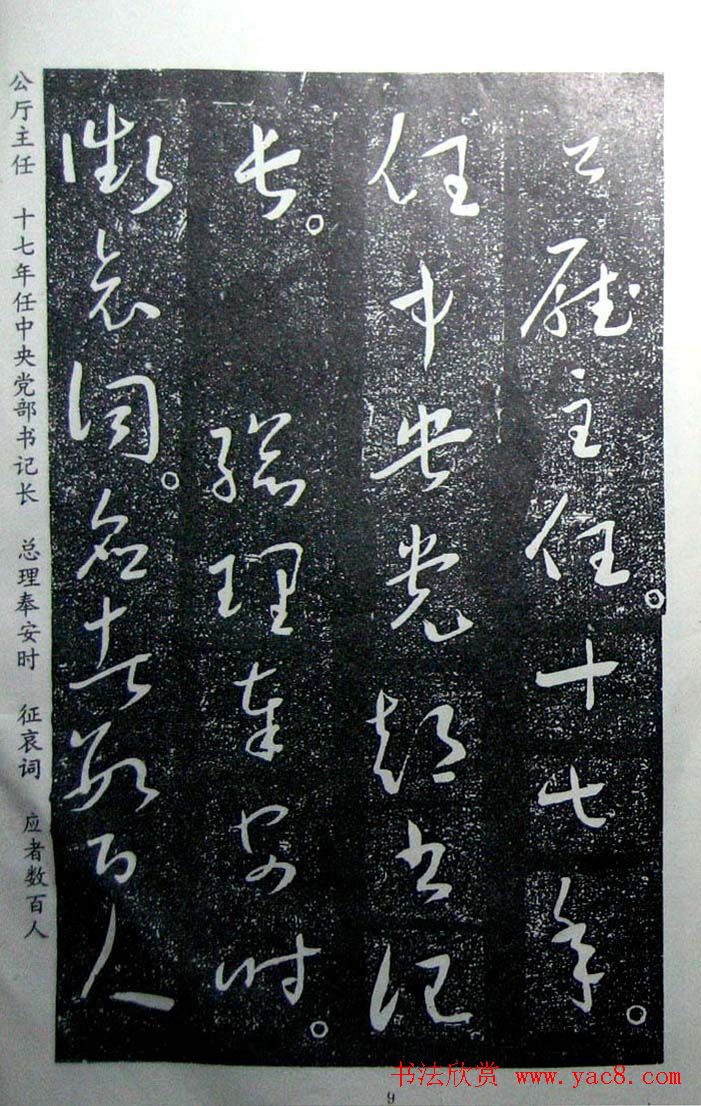 公廳主任。十七年。
任中央党部书记
长。總理奉安时。
徵哀词。应者数百人
公厅主任 十七年任中央党部书记长 总理奉安时 征哀词 应者数百人
9
书法欣赏 www.yac8.com